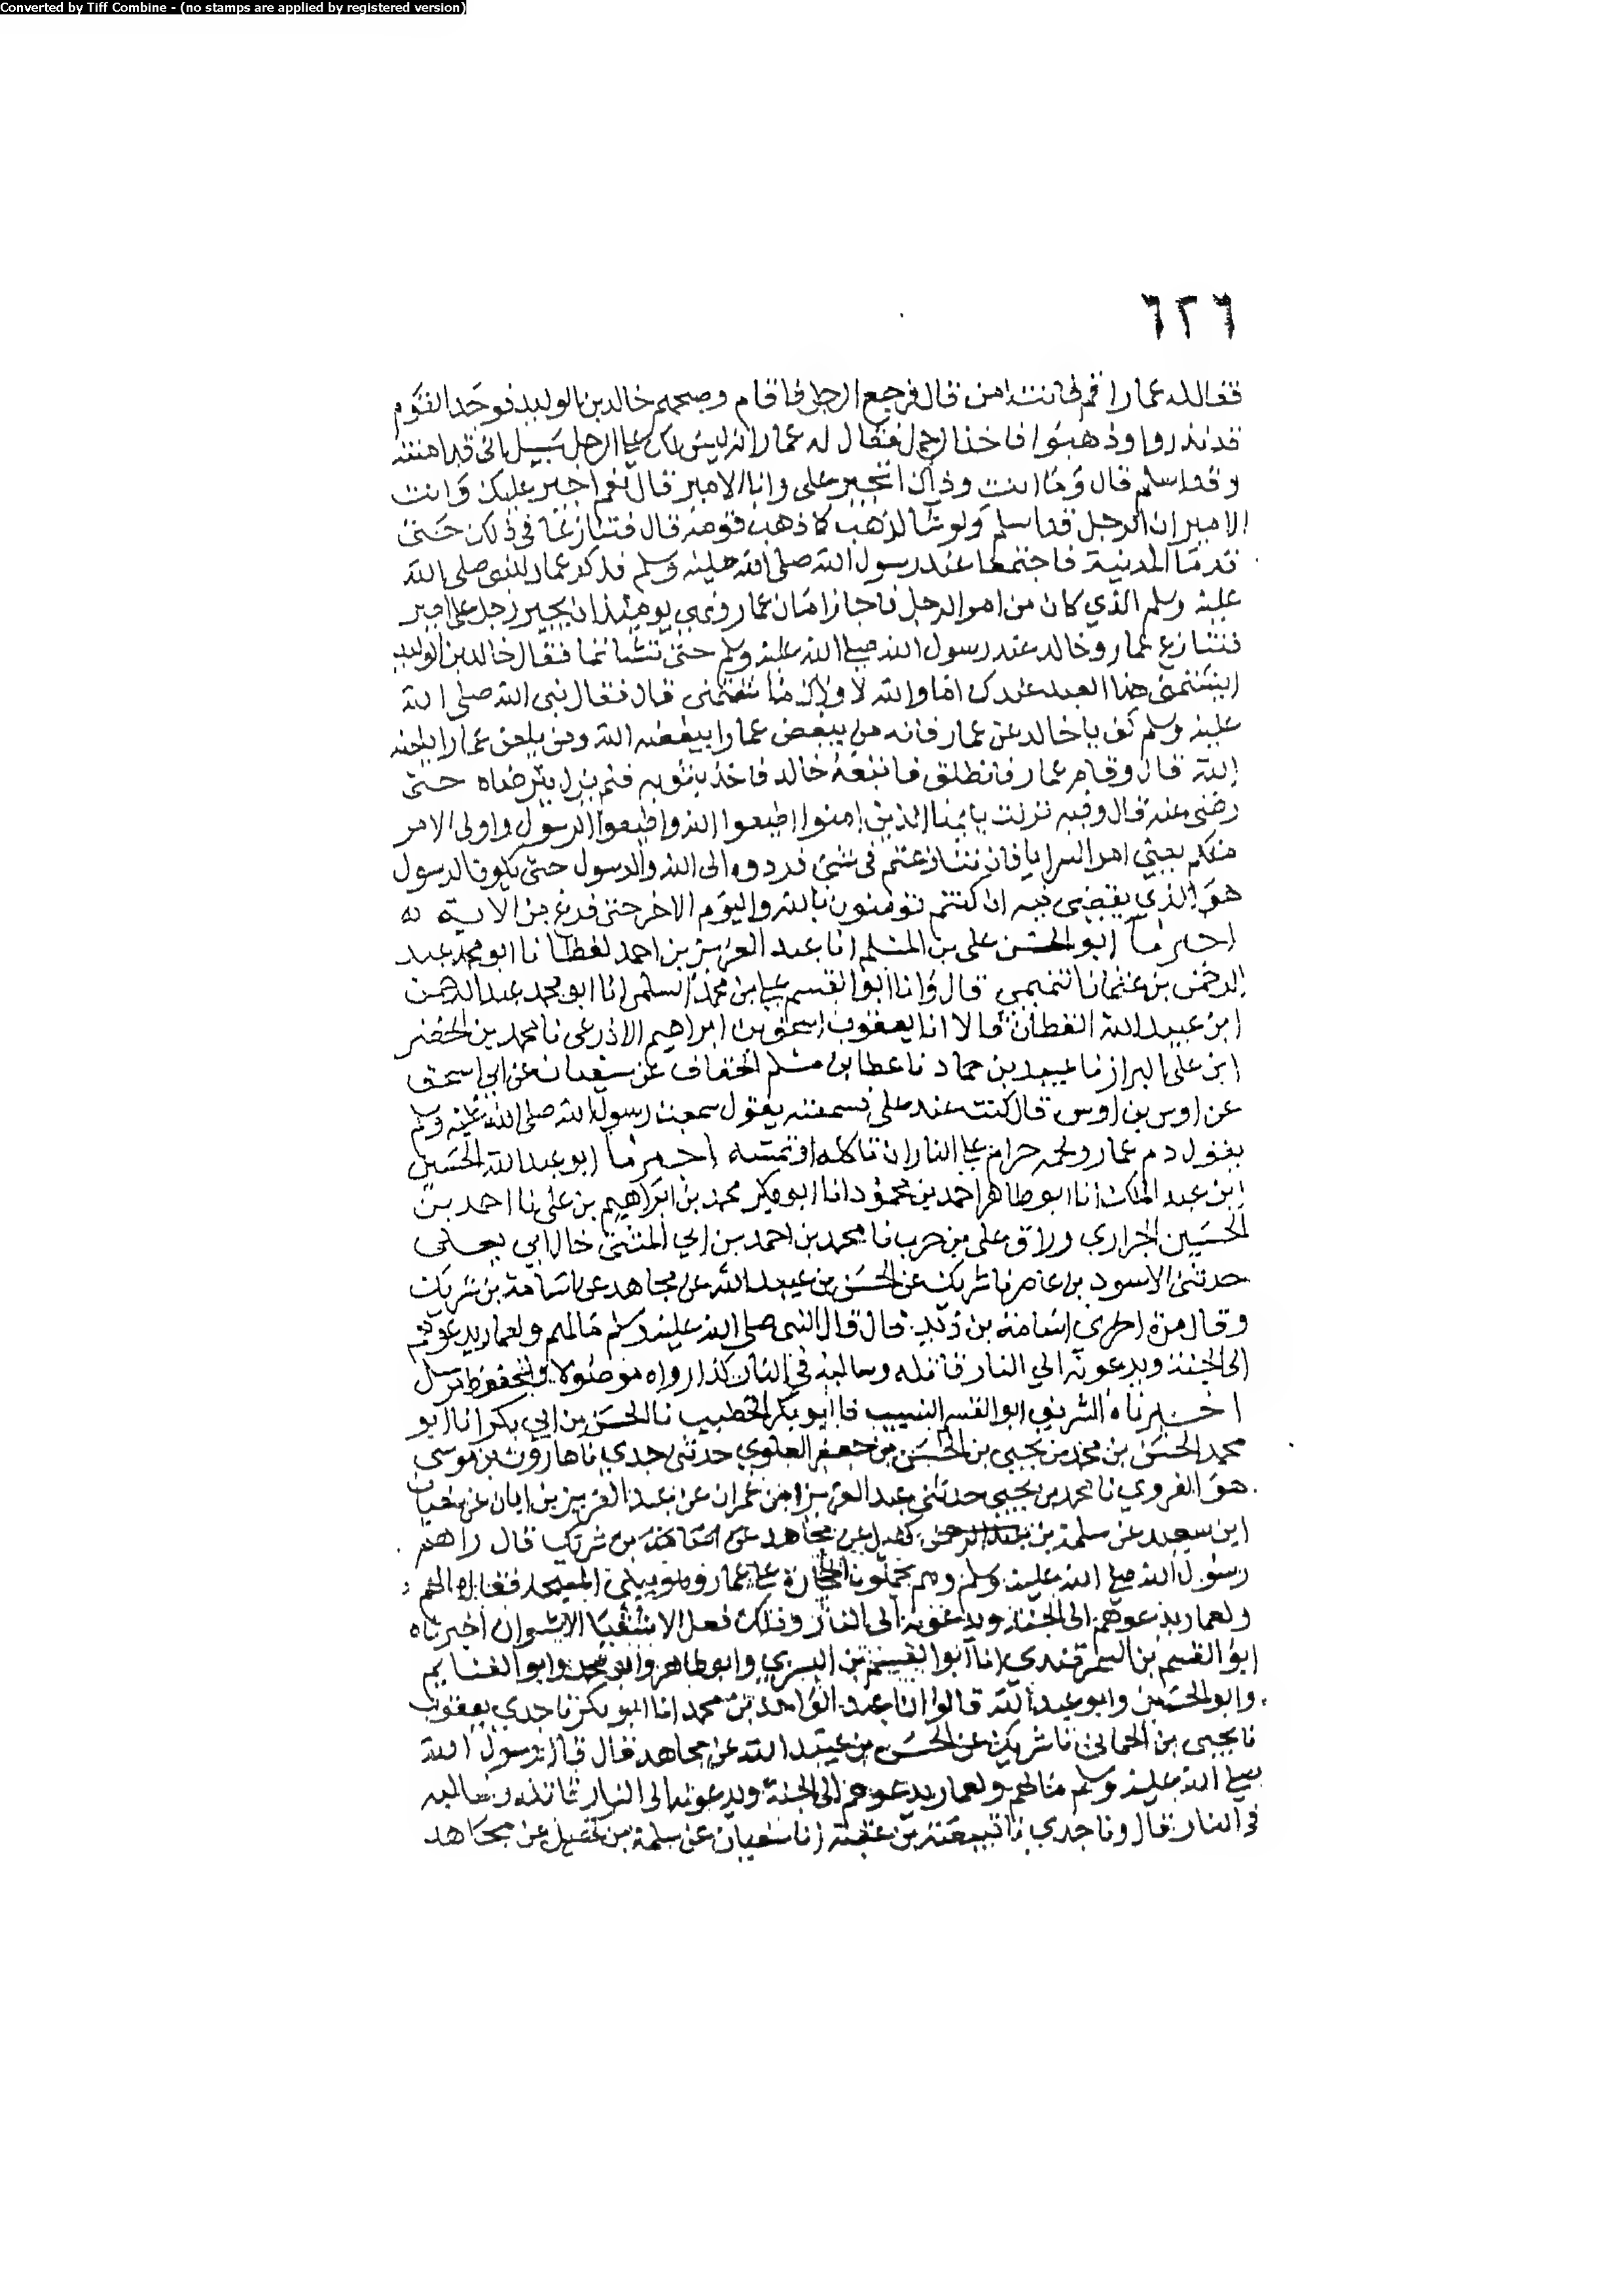 Converted by Tiff Combine - (no stamps are applied by registered version)
٦٢٦
فقال له عمار اقم فانت امن قال فرجع الرجل فاقام وصبحهم خالد بن الوليد فوجد القوم
قد نذروا وذهبوا فاخذ الرجل فقال له عمار انه ليس لك على الرجل سبيل اني قد امنته
وقد اسلم قال وما انت وذاك اتجير علي وانا الامير قال نعم اجير عليك وانت
الامير ان الرجل قد اسلم ولو شا لذهب كما ذهب قومه قال فتنازعا في ذلك حتى
قدما المدينة فاجتمعا عند رسول الله صلى الله عليه وسلم فذكر عمار للنبي صلى الله
عليه وسلم الذي كان من امر الرجل فاجاز امان عمار ونهى يومئذ ان يجير رجل على امير
فتنازع عمار وخالد عند رسول الله صلى الله عليه وسلم حتى تشاتما فقال خالد بن الوليد
ايشتمني هذا العبد عندك اما والله لولاك ما شتمني قال فقال نبي الله صلى الله
عليه وسلم كف يا خالد عن عمار فانه من يبغض عمارا يبغضه الله ومن يلعن عمارا يلعنه
الله قال وقام عمار فانطلق فاتبعه خالد فاخذ بثوبه فلم يزل يترضاه حتى
رضي عنه قال وفيه نزلت يايها الذين امنوا اطيعوا الله واطيعوا الرسول واولي الامر
منكم يعني امرا السرايا فان تنازعتم في شئ فردوه الى الله والرسول حتى يكون الرسول
هو الذي يقضي فيه ان كنتم تؤمنون بالله واليوم الاخر حتى فرغ من الاية
اخبرنا ابو الحسن علي بن المسلم انا عبد العزيز بن احمد لفظا نا ابو محمد عبد
الرحمن بن عثمان التميمي قال وانا ابو القسم علي بن محمد السلمي انا ابو محمد عبد الرحمن
ابن عبيد الله القطان قالا انا يعقوب اسحق بن ابراهيم الاذرعي نا محمد بن الخضر
ابن علي البزاز نا عبيد بن حماد نا عطا بن مسلم الخفاف عن سفيان عن ابي اسحق
عن اوس بن اوس قال كنت عند علي فسمعته يقول سمعت رسول الله صلى الله عليه وسلم
يقول دم عمار ولحمه حرام على النار ان تاكله او تمسه اخبرنا ابو عبد الله الحسين
ابن عبد الملك انا ابو طاهر احمد بن محمود انا ابو بكر محمد بن ابراهيم بن علي نا احمد بن
الحسين الجراري وراق علي بن حرب نا محمد بن احمد بن ابي المثنى خال ابي يعلى
حدثني الاسود بن عامر نا شريك عن الحسن بن عبيد الله عن مجاهد عن اسامة بن شريك
وقال مرة اخرى اسامة بن زيد قال قال النبي صلى الله عليه وسلم مالهم ولعمار يدعوهم
الى الجنة ويدعونه الي النار قاتله وسالبه في النار كذا رواه موصولا والمحفوظ مرسل
اخبرناه الشريف ابو القسم النسيب نا ابو بكر الخطيب نا الحسن بن ابي بكر انا ابو
محمد الحسن بن محمد بن يحيى بن الحسن بن جعفر العلوي حدثني جدي نا هارون بن موسى
هو الفروي نا محمد بن يحيى حدثني عبد العزيز بن عمران عن عبد العزيز بن ابان عن سفيان
ابن سعيد عن سلمة بن كهيل عن مجاهد عن اسامة بن شريك قال راهم
رسول الله صلى الله عليه وسلم وهم يحملون الحجارة على عمار وهو يبني المسجد فقال مالهم
ولعمار يدعوهم الى الجنة ويدعونه الى النار وذلك فعل الاشقيا الاشرار اخبرناه
ابو القسم بن السمرقندي انا ابو القسم بن البسري وابو طاهر وابو محمد وابو الغنايم
وابو الحسين وابو عبد الله قالوا انا عبد الواحد بن محمد انا ابو بكر نا جدي يعقوب
نا يحيى بن الحماني نا شريك عن الحسن بن عبيد الله عن مجاهد قال قال رسول الله
صلى الله عليه وسلم مالهم ولعمار يدعوهم الى الجنة ويدعونه الى النار قاتله وسالبه
في النار قال ونا جدي نا قبيصة بن عقبة نا سفيان عن سلمة بن كهيل عن مجاهد